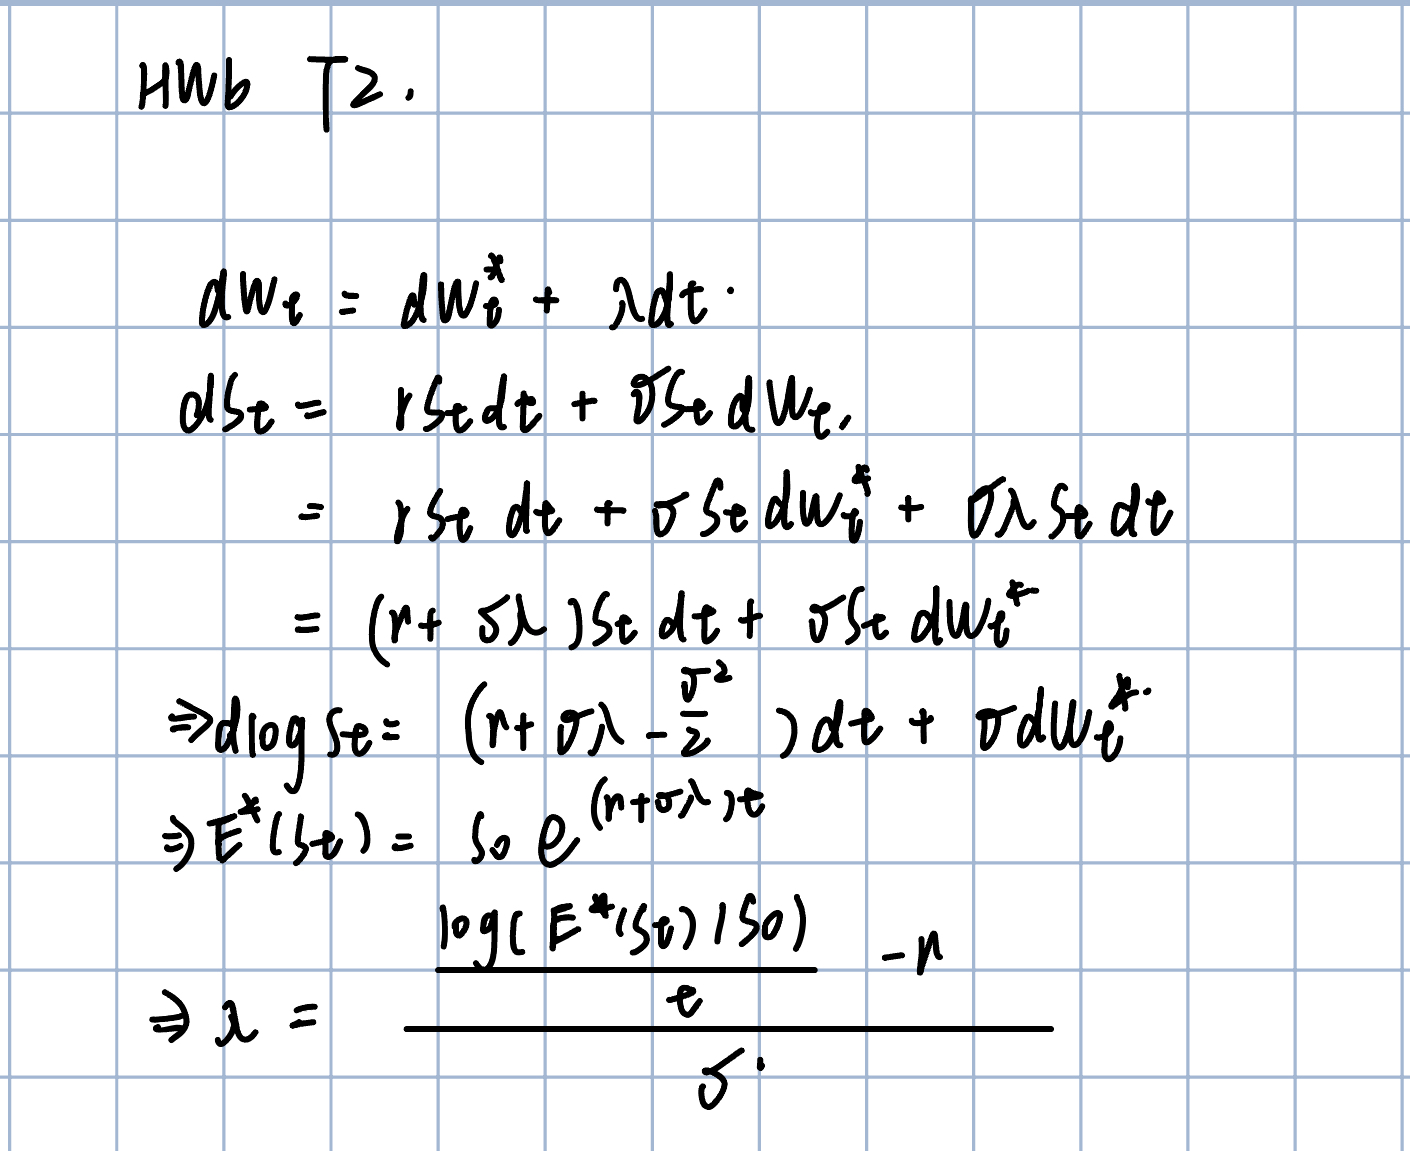 HW6 T2.
dW_t = dW_t^* + λdt.
dS_t = rS_t dt + σS_t dW_t.
= rS_t dt + σS_t dW_t^* + σλS_t dt
= (r + σλ)S_t dt + σS_t dW_t^*
⇒ dlog S_t = (r + σλ - σ²/2)dt + σdW_t^*.
⇒ E^*(S_t) = S_0 e^{(r+σλ)t}
⇒ λ = ((log(E^*(S_t)/S_0))/t - r)/σ.